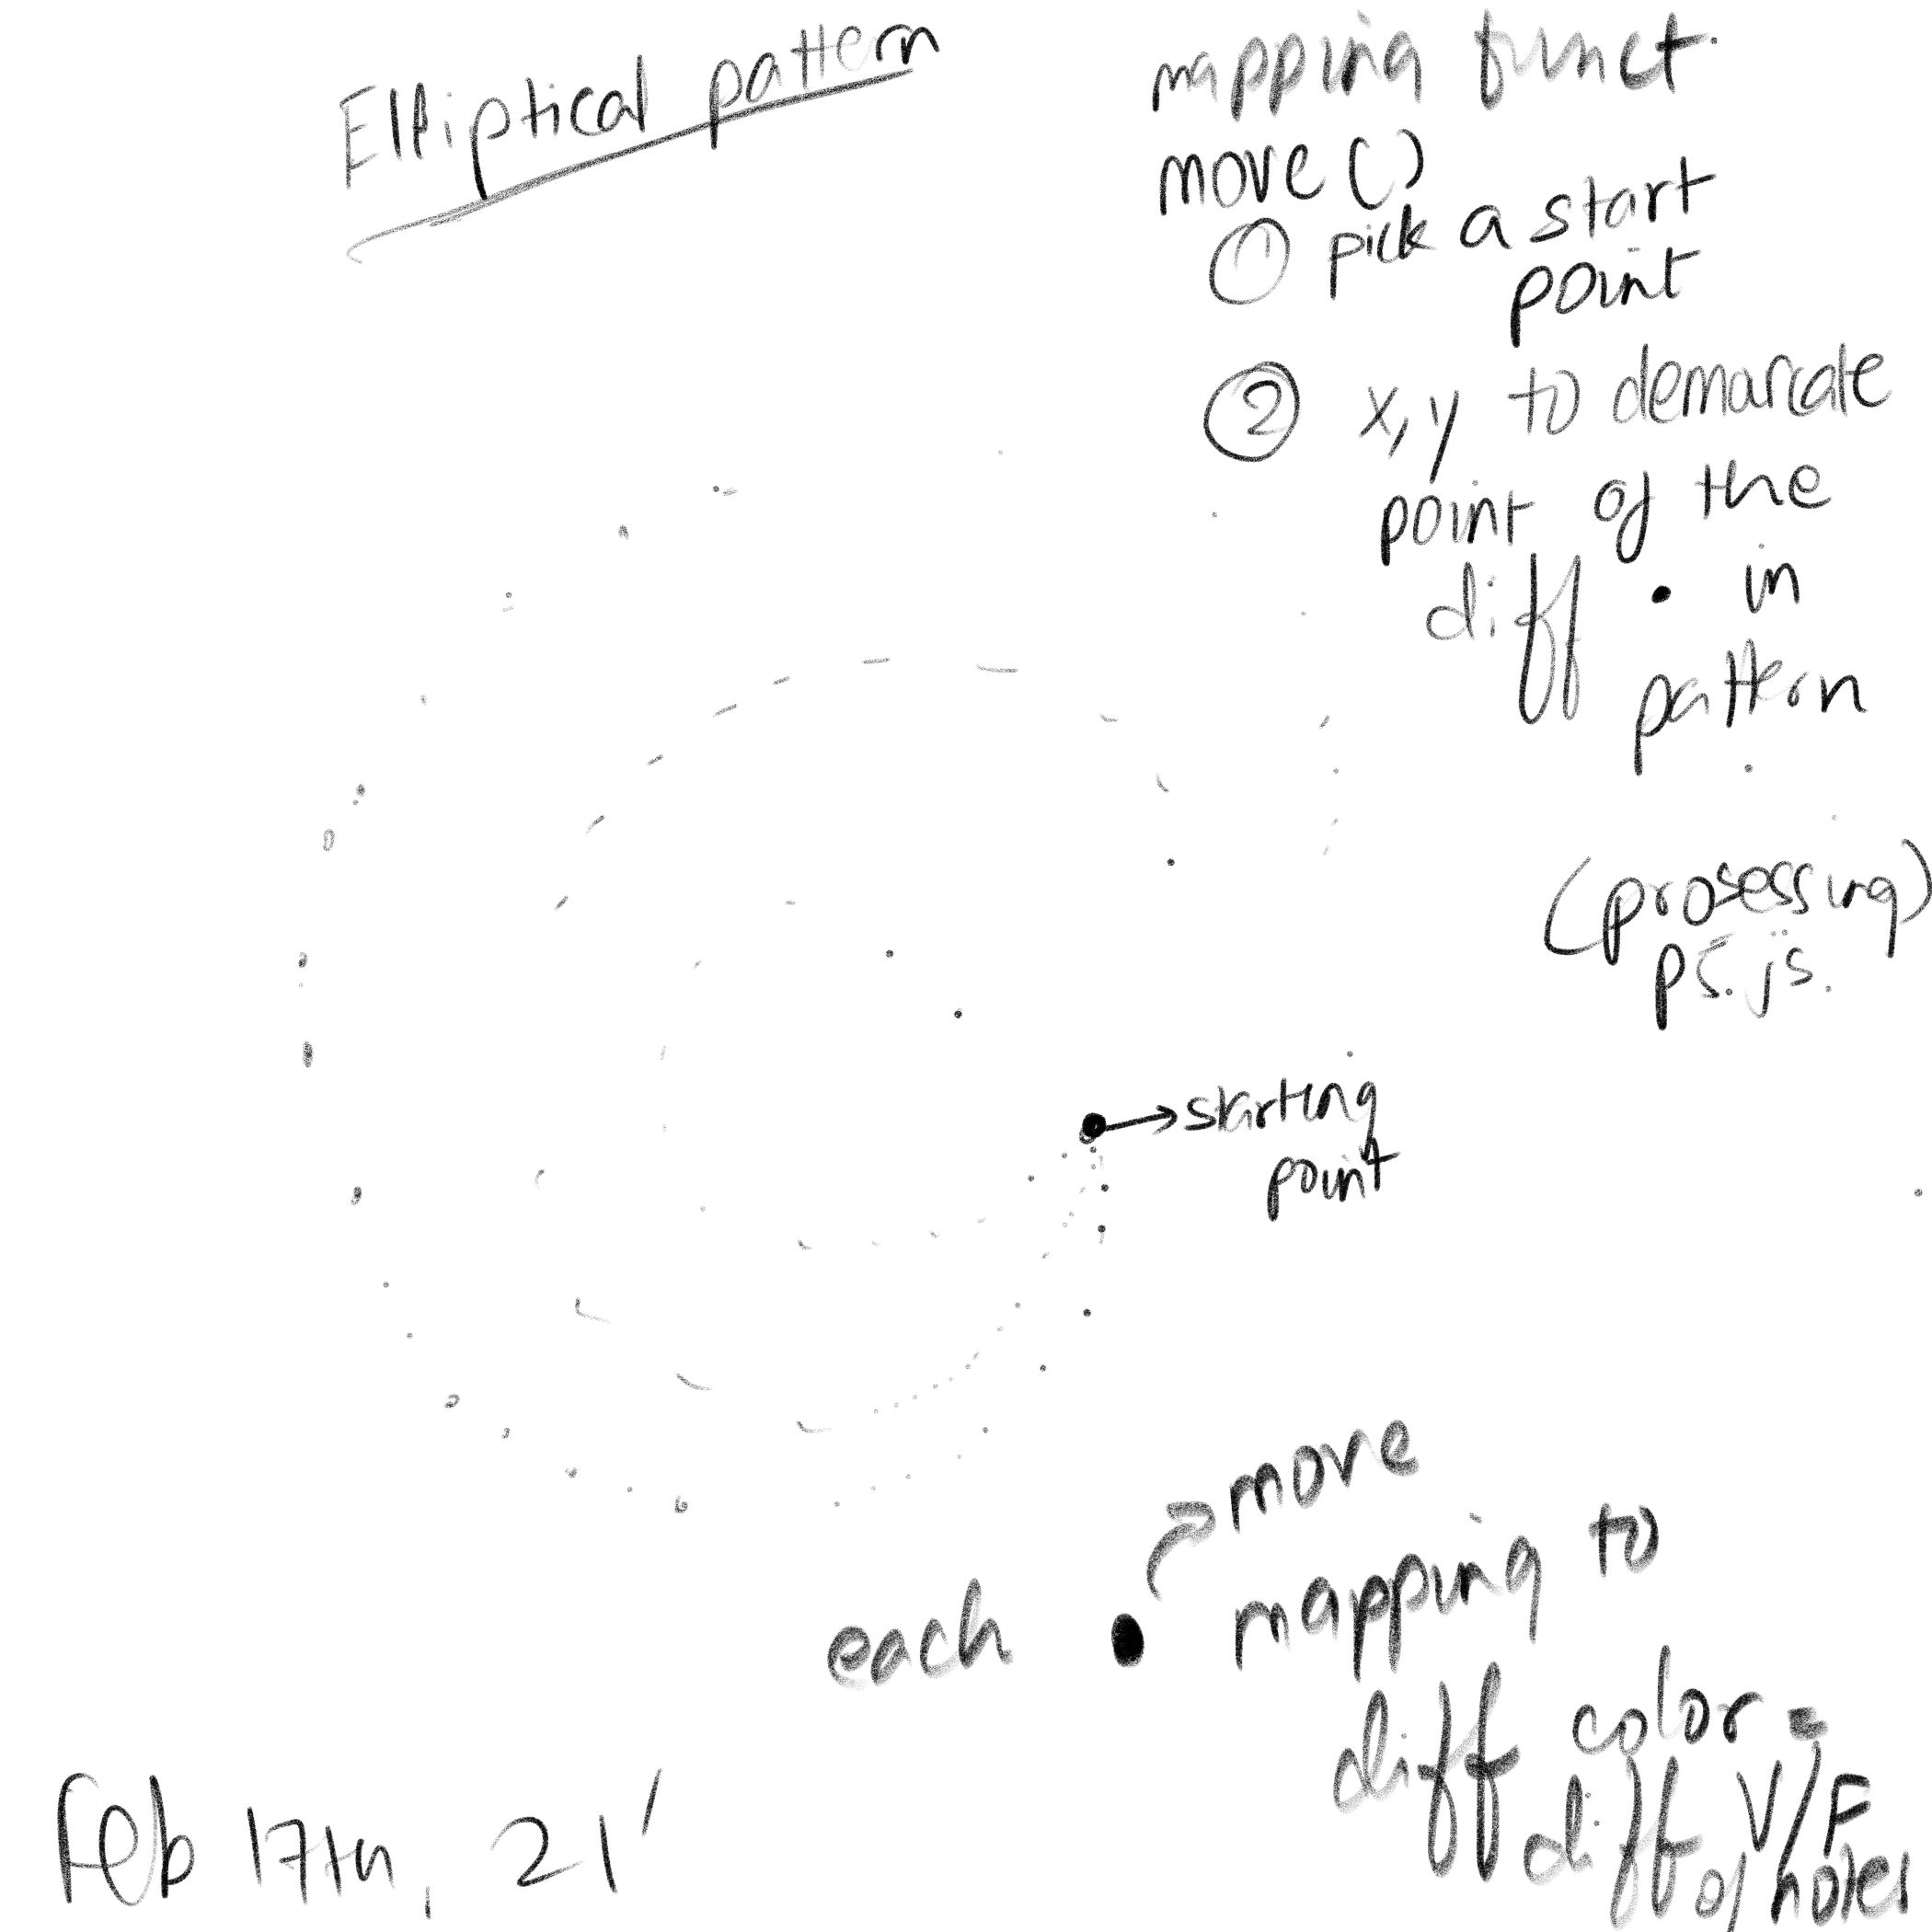 Elliptical pattern
mapping funct.
move ()
① pick a start
point
② x,y to demarcate
point of the
diff • in
pattern
(prosessing)
p5.js.
starting
point
each • move
mapping to
diff color =
diff V/F
of notes
Feb 17th, 21'